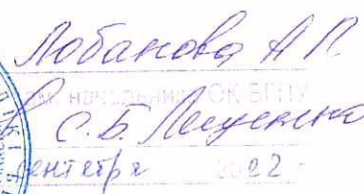 Лобанова А П.
зам. начальника ОК ВГПУ
С.Б. Лещенко
сентября 2022